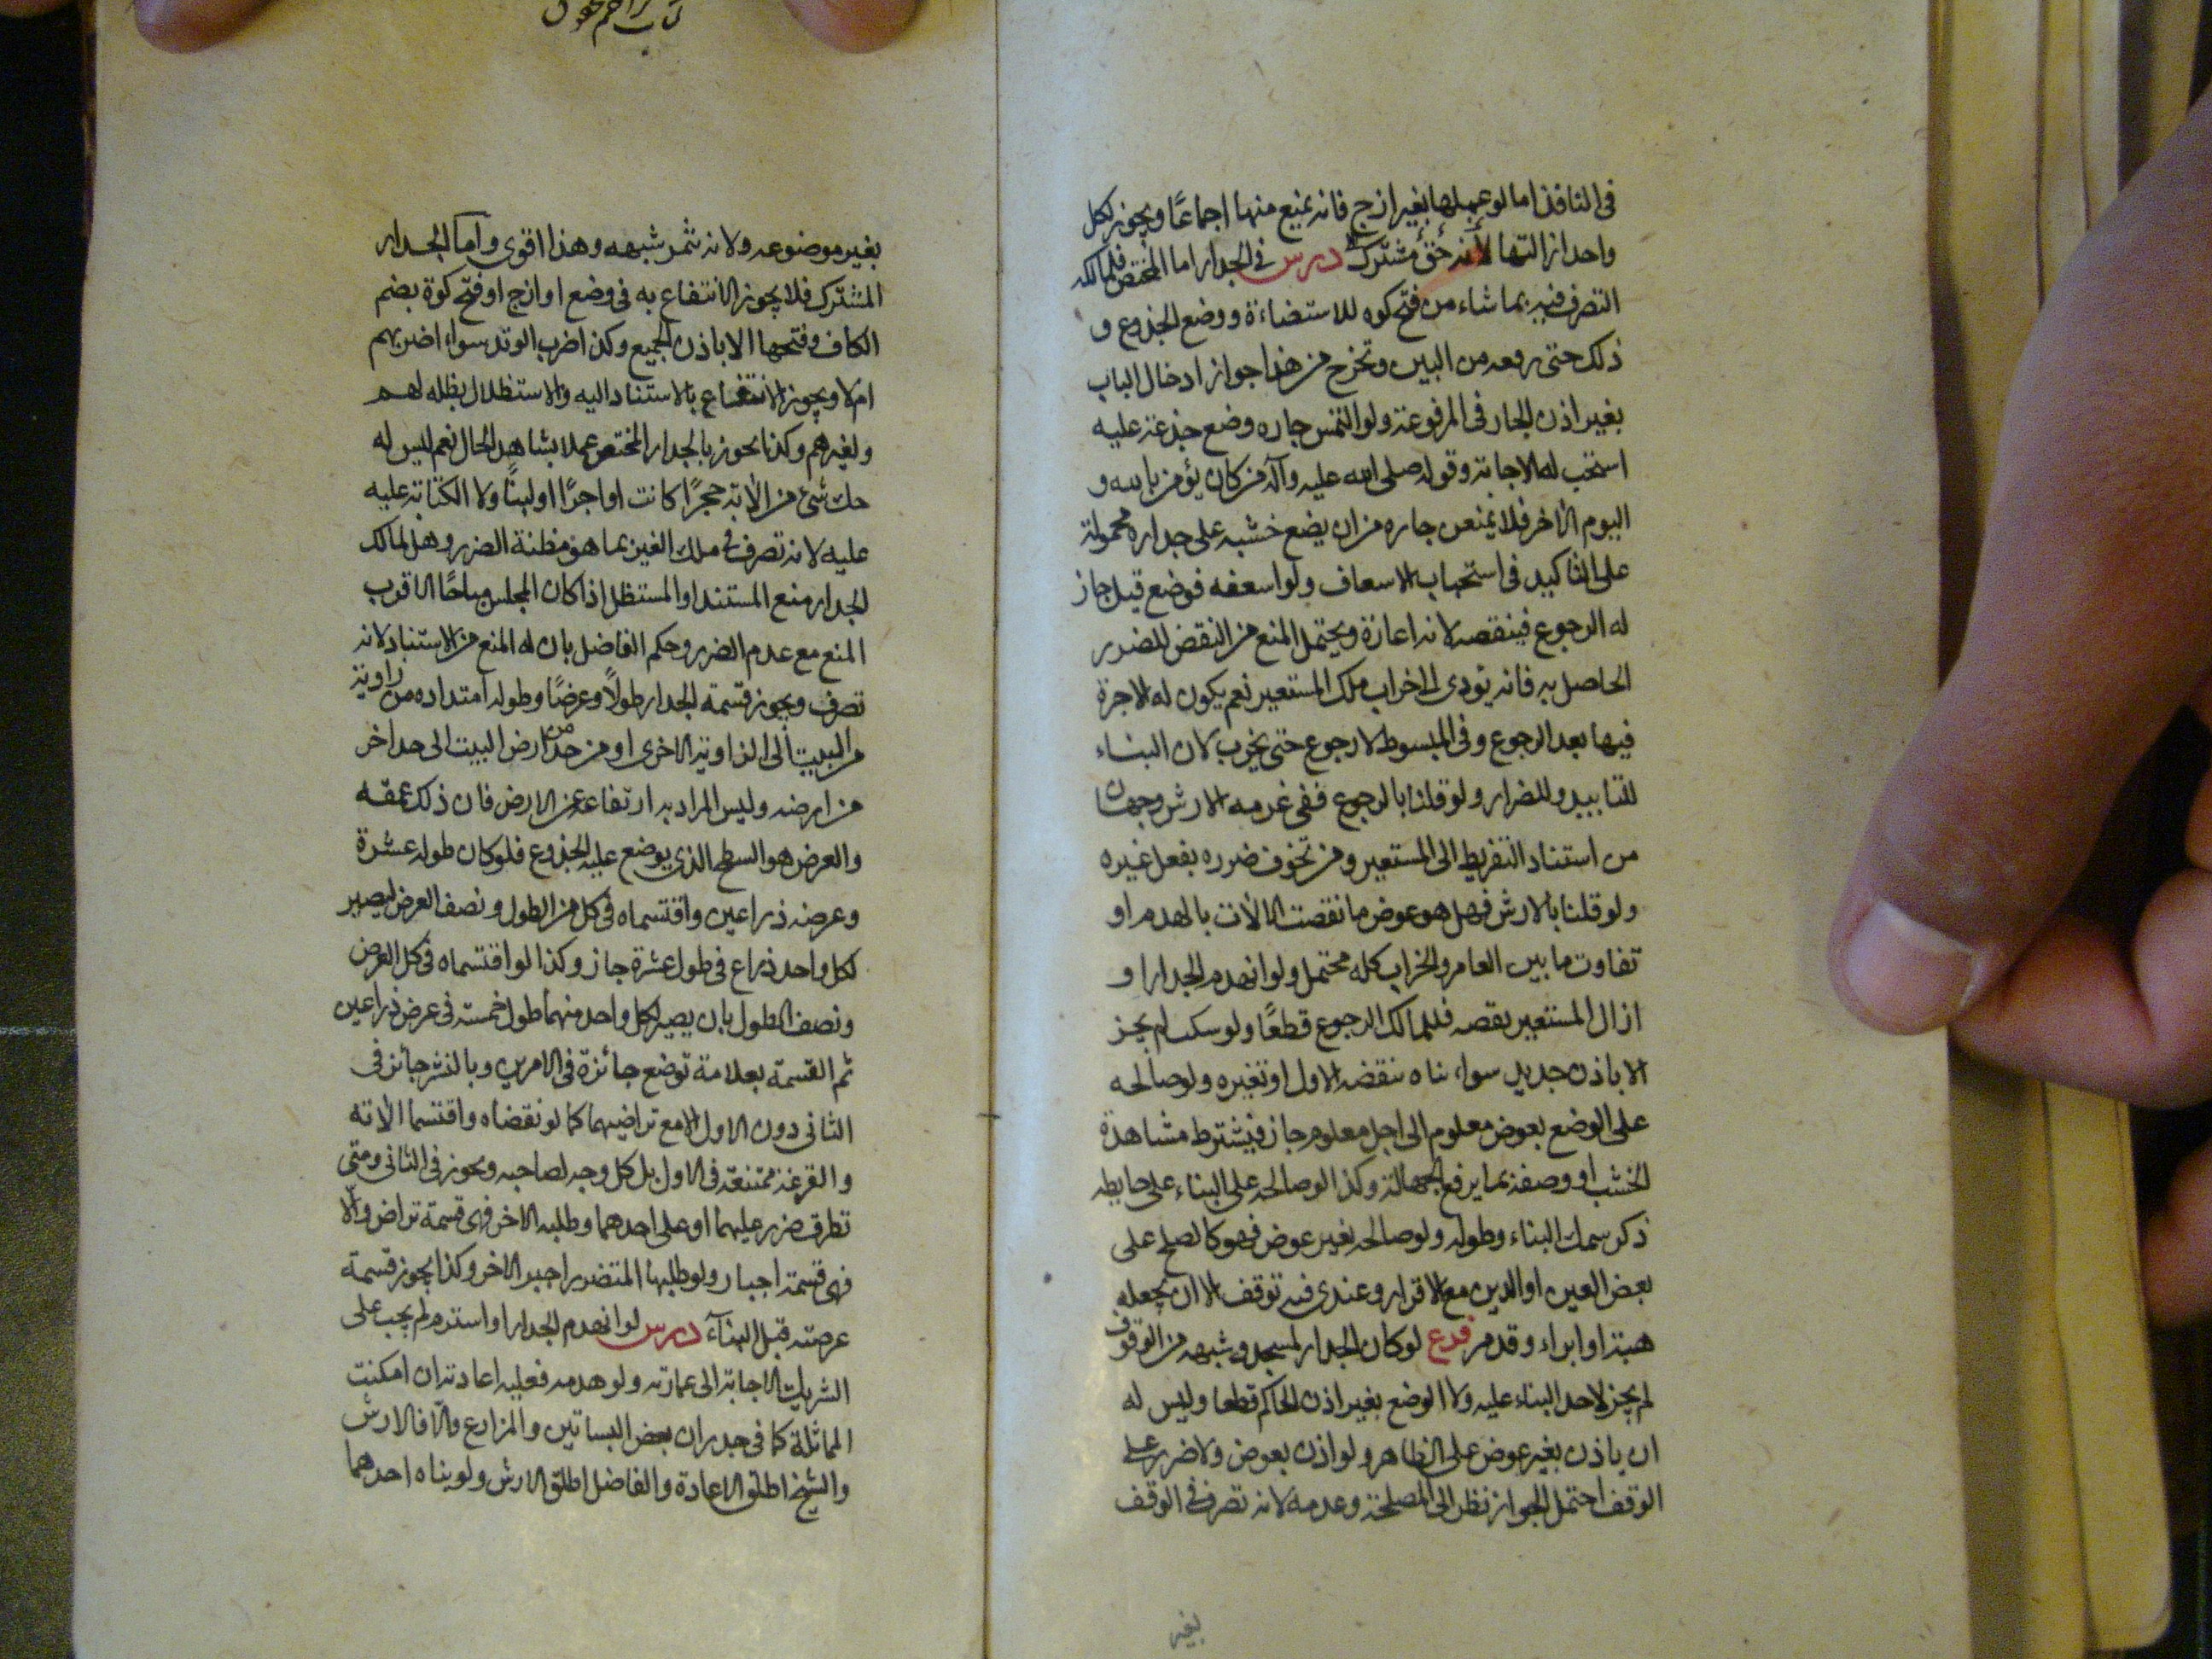 في النافذ اما لو عملها بغير ازج فانه يمنع منها اجماعًا ويجوز لكل
واحد ازالتها لأنه حق مشترك درس في الجدار اما المختص فلمالكه
التصرف فيه بما شاء من فتح كوه للاستضاءة ووضع الجذوع و
ذلك حتى رفعه من البين وتخرج من هذا جواز ادخال الباب
بغير اذن الجار في المرفوعة ولو التمس جاره وضع جذعة عليه
استحب له الاجابة وقوله صلى الله عليه وآله من كان يؤمن بالله و
اليوم الآخر فلا يمنعن جاره من ان يضع خشبه على جداره محمولة
على التأكيد في استحباب الاسعاف ولو اسعفه فوضع قيل جاز
له الرجوع فينقصه لانه اعارة ويحتمل المنع من النقض للضرر
الحاصل به فانه يؤدى الى خراب ملك المستعير نعم يكون له الاجرة
فيها بعد الرجوع وفى المبسوط لا رجوع حتى يخرب لان البناء
للتابيد وللضرار ولو قلنا بالرجوع ففى غرمه الارش وجهان
من استناد التفريط الى المستعير ومن تخوف ضرره بفعل غيره
ولو قلنا بالارش فهل هو عوض ما نقصت الالات بالهدم او
تفاوت ما بين العامر والخراب كله محتمل ولو انهدم الجدار او
ازال المستعير نقصه فللمالك الرجوع قطعًا ولو سكت لم يجز
الا باذن جديد سواء بناه بنقضه الاول او بغيره ولو صالحه
على الوضع بعوض معلوم الى اجل معلوم جاز فيشترط مشاهدة
الخشب او وصفه بما يرفع الجهالة وكذا لو صالحه على البناء على حايطه
ذكر سمك البناء وطوله ولو صالحه بغير عوض فهو كالصلح على
بعض العين او الدين مع الاقرار وعندى فيه توقف الا ان يجعله
هبة او ابراء وقد مر فرع لو كان الجدار لمسجد وشبهه من الوقوف
لم يجز لاحد البناء عليه ولا الوضع بغير اذن الحاكم قطعا وليس له
ان ياذن بغير عوض على الظاهر ولو اذن بعوض ولا ضرر على
الوقف احتمل الجواز نظر الى المصلحة وعدمه لانه تصرف في الوقف
بغير
بغير موضوعه ولانه تثمر شبهه وهذا اقوى واما الجدار
المشترك فلا يجوز الانتفاع به فى وضع او ازج او فتح كوة بضم
الكاف وفتحها الا باذن الجميع وكذا ضرب الوتد سواء اضربهم
ام لا ويجوز الانتفاع بالاستناد اليه والاستظلال بظله لهم
ولغيرهم وكذا يجوز بالجدار المختص عملا بشاهد الحال نعم ليس له
حك شئ من الآته حجرًا كانت او اجرًا او لبنًا ولا الكتابة عليه
عليه لانه تصرف فى ملك الغير بما هو مظنة الضرر وهل لمالك
الجدار منع المستند او المستظل اذا كان المجلس مباحًا الاقرب
المنع مع عدم الضرر وحكم الفاضل بان له المنع من الاستناد لانه
تصرف ويجوز قسمة الجدار طولاً وعرضًا وطوله امتداده من زاوية
من البيت الى الزاوية الاخرى او من حد من ارض البيت الى حد اخر
من ارضه وليس المراد به ارتفاعه عن الارض فان ذلك عمقه
والعرض هو السطح الذى يوضع عليه الجذوع فلو كان طوله عشرة
وعرضه ذراعين واقتسماه فى كل من الطول ونصف العرض ليصير
لكل واحد ذراع فى طول عشرة جاز وكذا لو اقتسماه فى كل العرض
ونصف الطول بان يصير لكل واحد منهما طول خمسة فى عرض ذراعين
ثم القسمة بعلامة توضع جائزة فى الامرين وبالنشر جائز فى
الثانى دون الاول الا مع تراضيهما كما لو نقضاه واقتسما الآته
والقرعة ممتنعة فى الاول بل كل وجه لصاحبه ويجوز فى الثانى ومتى
تطرق ضرر عليهما او على احدهما وطلبه الاخر فهى قسمة تراض والا
فهى قسمة اجبار ولو طلبها المتضرر اجبر الاخر وكذا يجوز قسمة
عرصته قبل البناء درس لو انهدم الجدار او استرم لم يجب على
الشريك الاجابة الى عمارته ولو هدمه فعليه اعادته ان امكنت
المماثلة كما فى جدران بعض البساتين والمزارع والا فالارش
والشيخ اطلق الاعادة والفاضل اطلق الارش ولو بناه احدهما